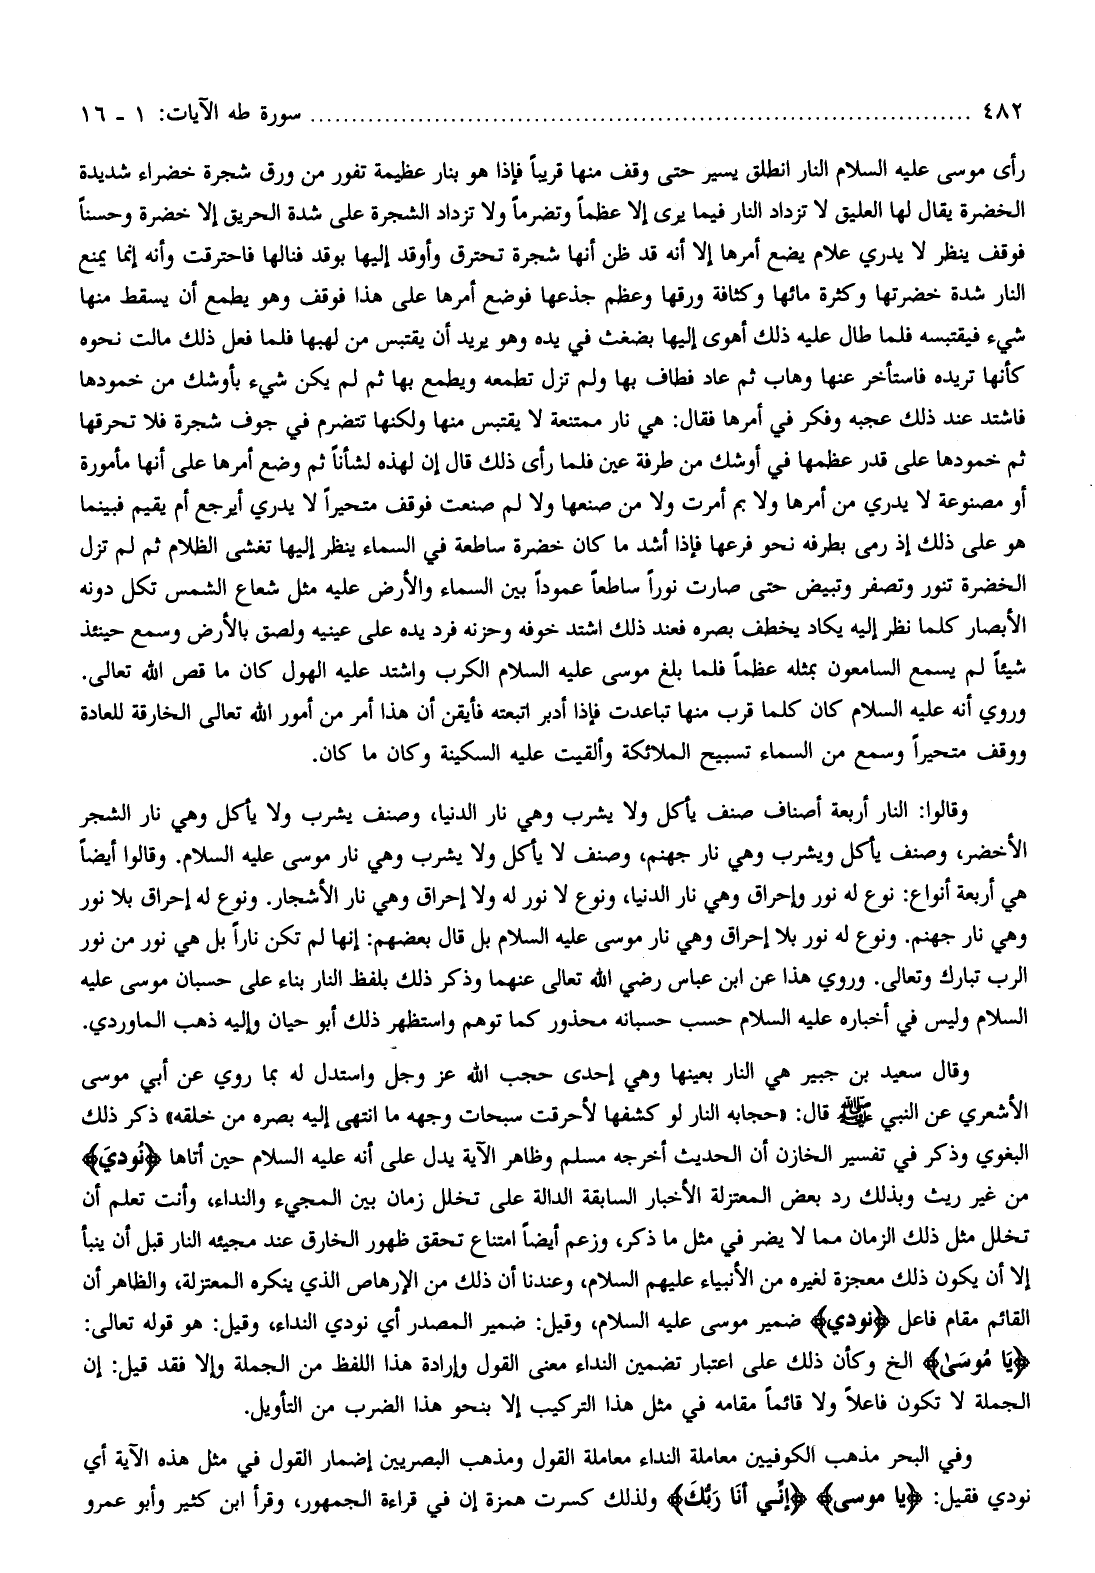 ٤٨٢ ........................................................................ سورة طه الآيات: ١ - ١٦
رأى موسى عليه السلام النار انطلق يسير حتى وقف منها قريباً فإذا هو بنار عظيمة تفور من ورق شجرة خضراء شديدة
الخضرة يقال لها العليق لا تزداد النار فيما يرى إلا عظماً وتضرماً ولا تزداد الشجرة على شدة الحريق إلا خضرة وحسناً
فوقف ينظر لا يدري علام يضع أمرها إلا أنه قد ظن أنها شجرة تحترق وأوقد إليها بوقد فنالها فاحترقت وأنه إنما يمنع
النار شدة خضرتها وكثرة مائها وكثافة ورقها وعظم جذعها فوضع أمرها على هذا فوقف وهو يطمع أن يسقط منها
شيء فيقتبسه فلما طال عليه ذلك أهوى إليها بضغث في يده وهو يريد أن يقتبس من لهبها فلما فعل ذلك مالت نحوه
كأنها تريده فاستأخر عنها وهاب ثم عاد فطاف بها ولم تزل تطمعه ويطمع بها ثم لم يكن شيء بأوشك من خمودها
فاشتد عند ذلك عجبه وفكر في أمرها فقال: هي نار ممتنعة لا يقتبس منها ولكنها تتضرم في جوف شجرة فلا تحرقها
ثم خمودها على قدر عظمها في أوشك من طرفة عين فلما رأى ذلك قال إن لهذه لشأناً ثم وضع أمرها على أنها مأمورة
أو مصنوعة لا يدري من أمرها ولا بم أمرت ولا من صنعها ولا لم صنعت فوقف متحيراً لا يدري أيرجع أم يقيم فبينما
هو على ذلك إذ رمى بطرفه نحو فرعها فإذا أشد ما كان خضرة ساطعة في السماء ينظر إليها تغشى الظلام ثم لم تزل
الخضرة تنور وتصفر وتبيض حتى صارت نوراً ساطعاً عموداً بين السماء والأرض عليه مثل شعاع الشمس تكل دونه
الأبصار كلما نظر إليه يكاد يخطف بصره فعند ذلك اشتد خوفه وحزنه فرد يده على عينيه ولصق بالأرض وسمع حينئذ
شيئاً لم يسمع السامعون بمثله عظماً فلما بلغ موسى عليه السلام الكرب واشتد عليه الهول كان ما قص الله تعالى.
وروي أنه عليه السلام كان كلما قرب منها تباعدت فإذا أدبر اتبعته فأيقن أن هذا أمر من أمور الله تعالى الخارقة للعادة
ووقف متحيراً وسمع من السماء تسبيح الملائكة وألقيت عليه السكينة وكان ما كان.
وقالوا: النار أربعة أصناف صنف يأكل ولا يشرب وهي نار الدنيا، وصنف يشرب ولا يأكل وهي نار الشجر
الأخضر، وصنف يأكل ويشرب وهي نار جهنم، وصنف لا يأكل ولا يشرب وهي نار موسى عليه السلام. وقالوا أيضاً
هي أربعة أنواع: نوع له نور وإحراق وهي نار الدنيا، ونوع لا نور له ولا إحراق وهي نار الأشجار. ونوع له إحراق بلا نور
وهي نار جهنم. ونوع له نور بلا إحراق وهي نار موسى عليه السلام بل قال بعضهم: إنها لم تكن ناراً بل هي نور من نور
الرب تبارك وتعالى. وروي هذا عن ابن عباس رضي الله تعالى عنهما وذكر ذلك بلفظ النار بناء على حسبان موسى عليه
السلام وليس في أخباره عليه السلام حسب حسبانه محذور كما توهم واستظهر ذلك أبو حيان وإليه ذهب الماوردي.
وقال سعيد بن جبير هي النار بعينها وهي إحدى حجب الله عز وجل واستدل له بما روي عن أبي موسى
الأشعري عن النبي ﷺ قال: «حجابه النار لو كشفها لأحرقت سبحات وجهه ما انتهى إليه بصره من خلقه» ذكر ذلك
البغوي وذكر في تفسير الخازن أن الحديث أخرجه مسلم وظاهر الآية يدل على أنه عليه السلام حين أتاها ﴿نُودِيَ﴾
من غير ريث وبذلك رد بعض المعتزلة الأخبار السابقة الدالة على تخلل زمان بين المجيء والنداء، وأنت تعلم أن
تخلل مثل ذلك الزمان مما لا يضر في مثل ما ذكر، وزعم أيضاً امتناع تحقق ظهور الخارق عند مجيئه النار قبل أن ينبأ
إلا أن يكون ذلك معجزة لغيره من الأنبياء عليهم السلام، وعندنا أن ذلك من الإرهاص الذي ينكره المعتزلة، والظاهر أن
القائم مقام فاعل ﴿نودي﴾ ضمير موسى عليه السلام، وقيل: ضمير المصدر أي نودي النداء، وقيل: هو قوله تعالى:
﴿يَا مُوسَىٰ﴾ الخ وكأن ذلك على اعتبار تضمين النداء معنى القول وإرادة هذا اللفظ من الجملة وإلا فقد قيل: إن
الجملة لا تكون فاعلاً ولا قائماً مقامه في مثل هذا التركيب إلا بنحو هذا الضرب من التأويل.
وفي البحر مذهب الكوفيين معاملة النداء معاملة القول ومذهب البصريين إضمار القول في مثل هذه الآية أي
نودي فقيل: ﴿يا موسى﴾ ﴿إنِّي أنَا رَبُّكَ﴾ ولذلك كسرت همزة إن في قراءة الجمهور، وقرأ ابن كثير وأبو عمرو